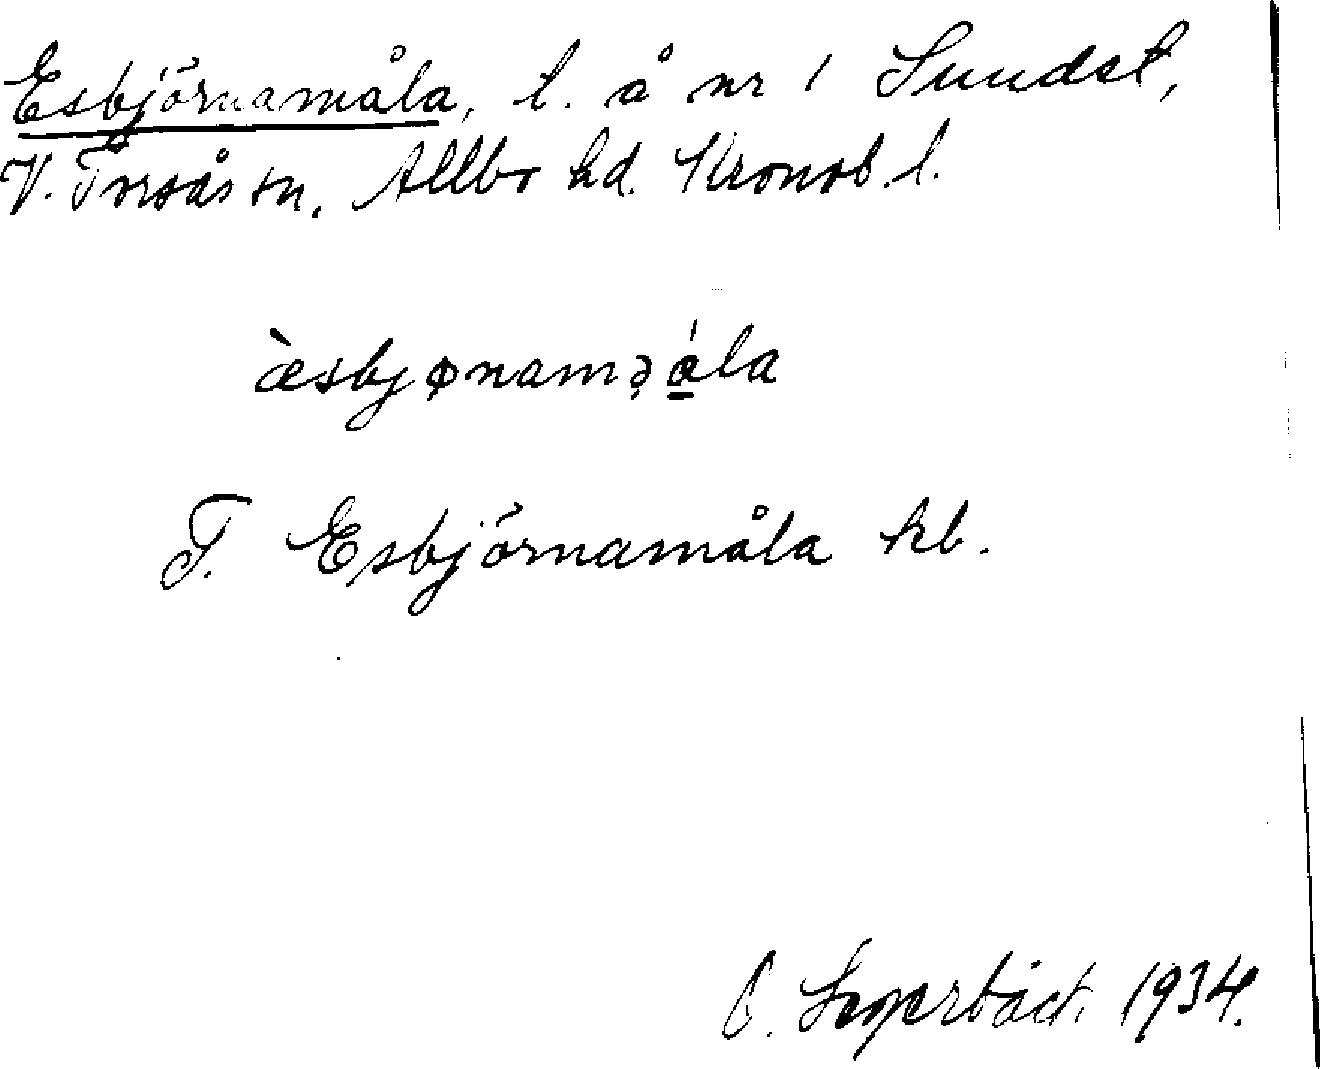 Esbjörnamåla, t. å nr 1 Sundet,
V. Torsås sn, Allbo hd. Kronob. l.
æ̀sbjønamɔála
F. Esbjörnamåla kb.
1934.